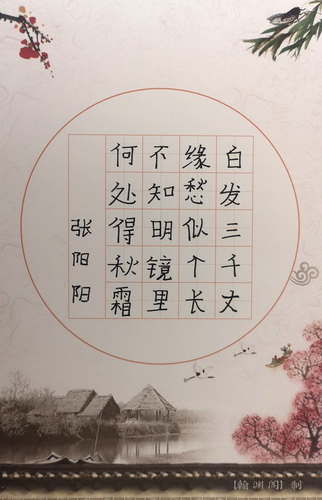 白发三千丈
缘愁似个长
不知明镜里
何处得秋霜
张阳阳
【翰渊阁】制